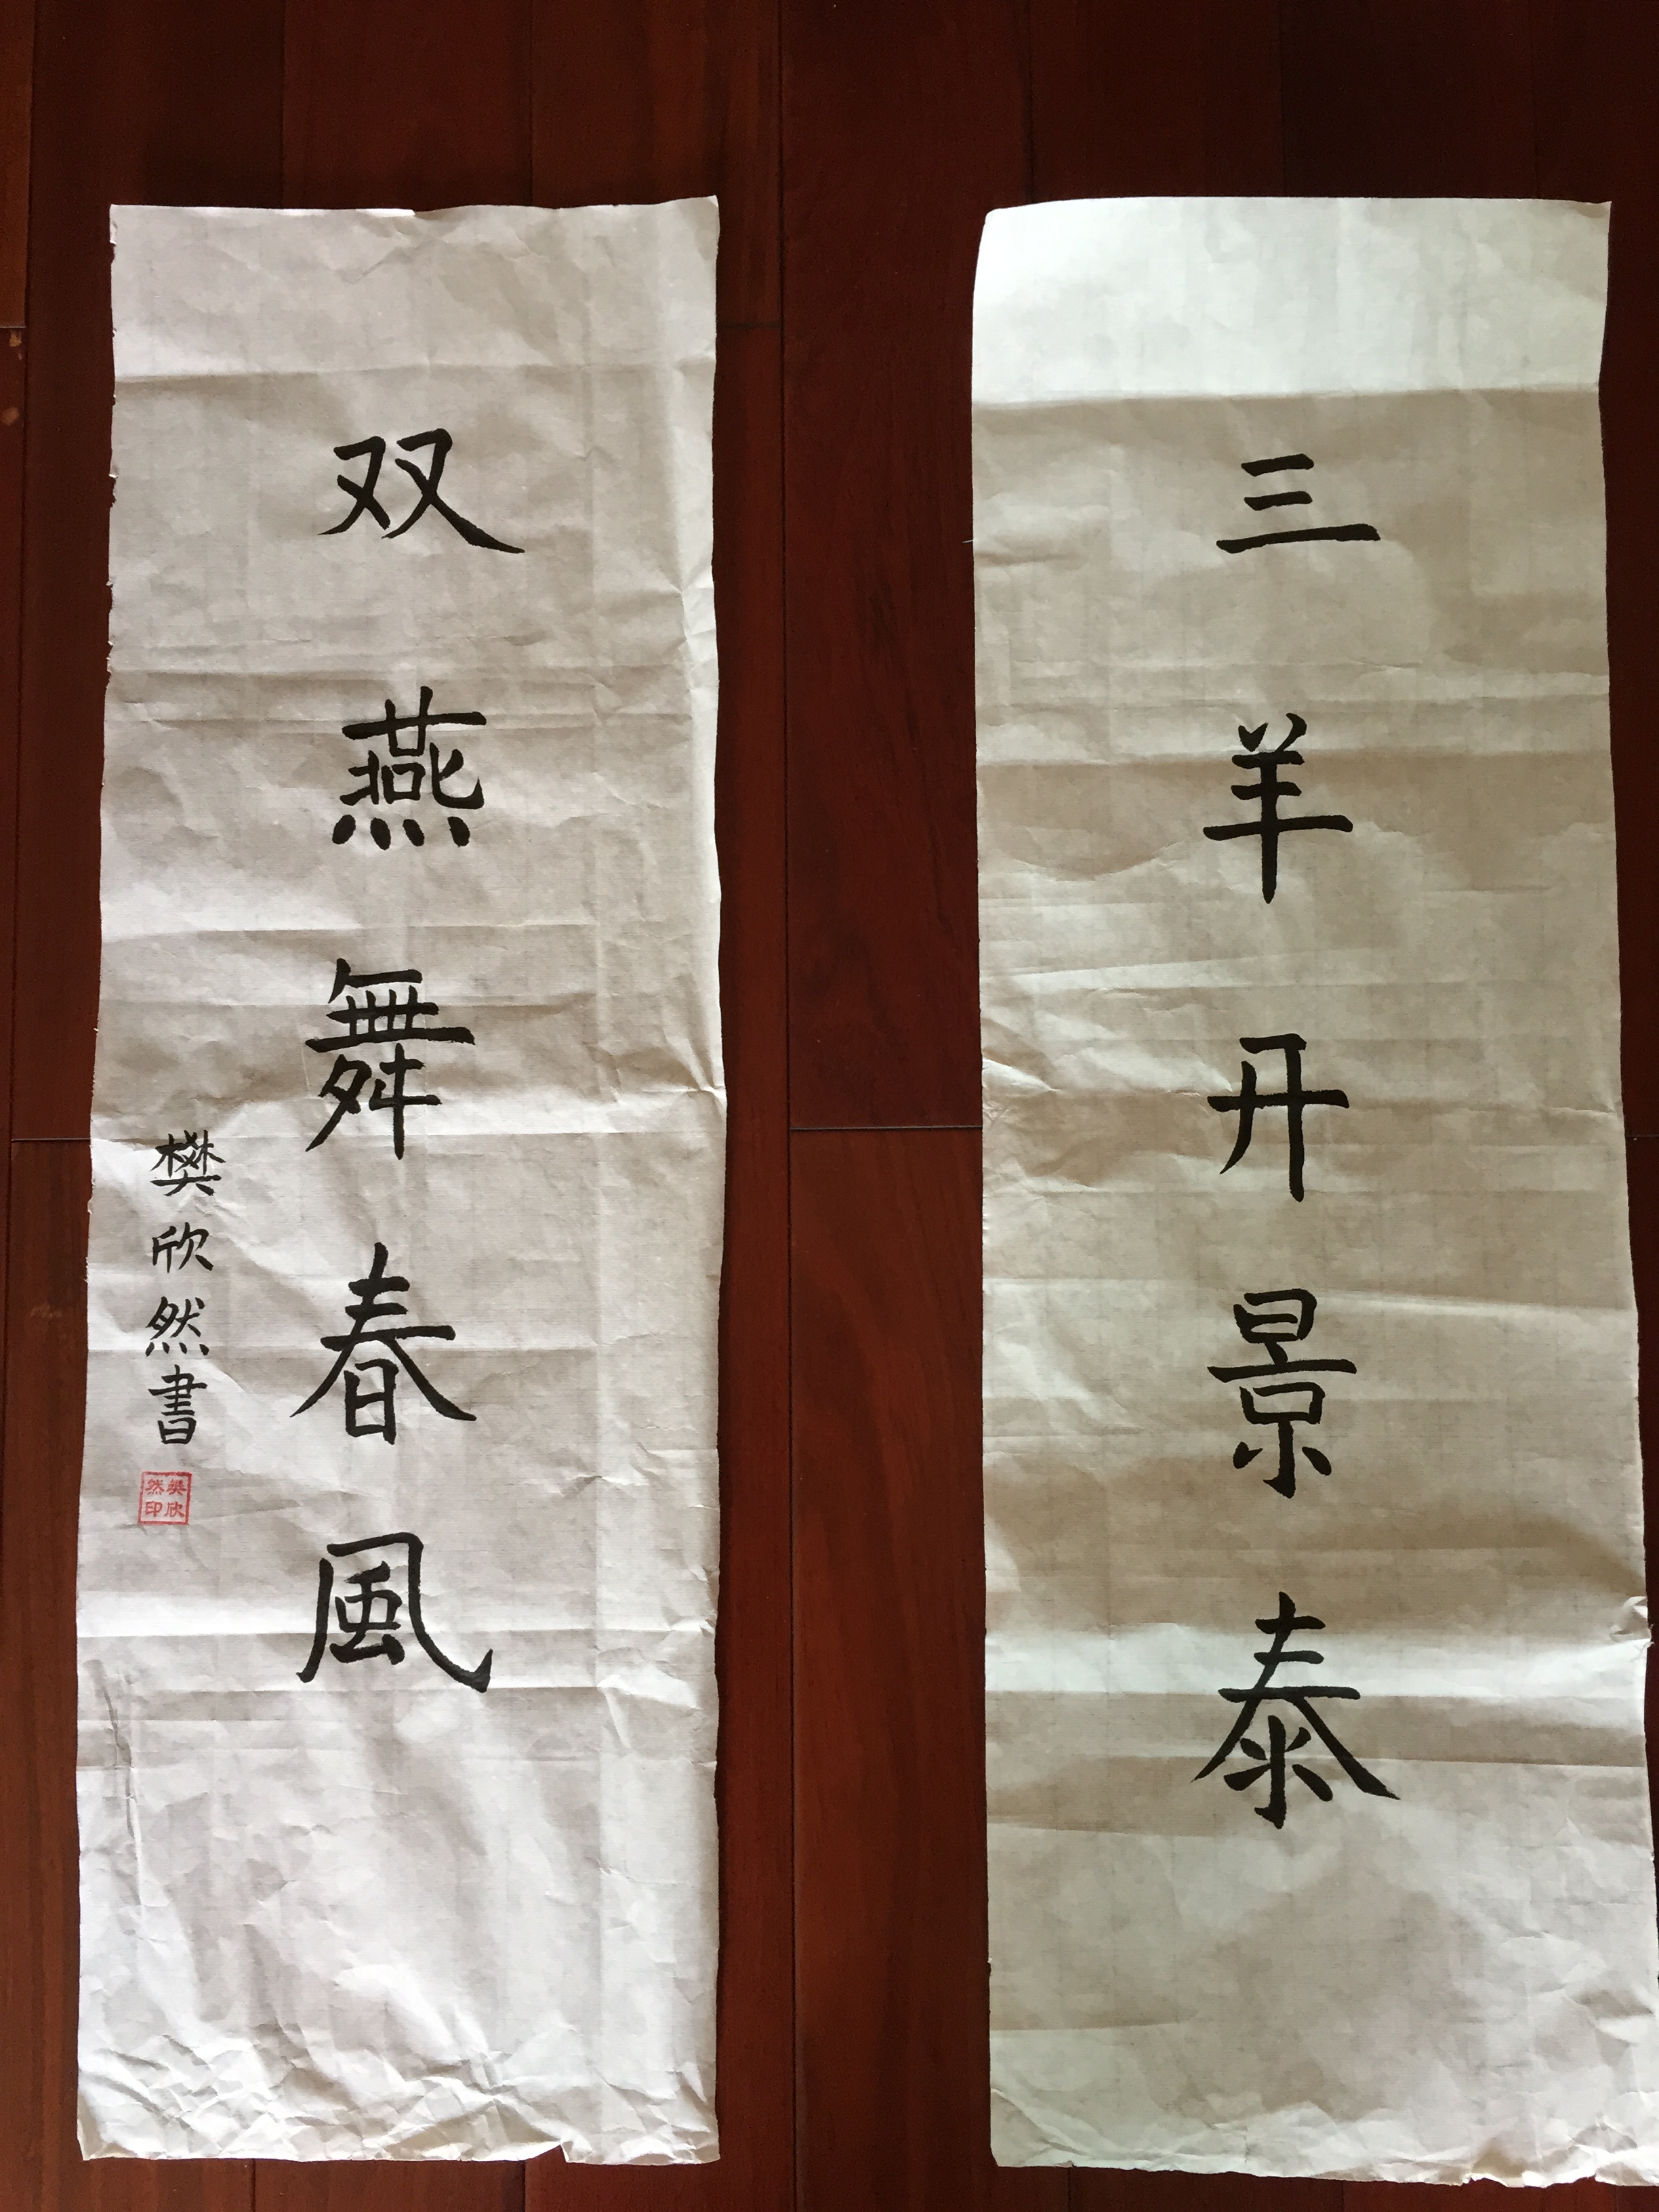 三羊开景泰
双燕舞春風
樊欣然書
樊欣
然印